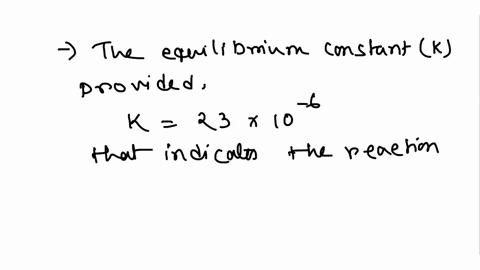 → The equilibrium constant (K)
provided,
K = 23 × 10^-6
that indicates the reaction